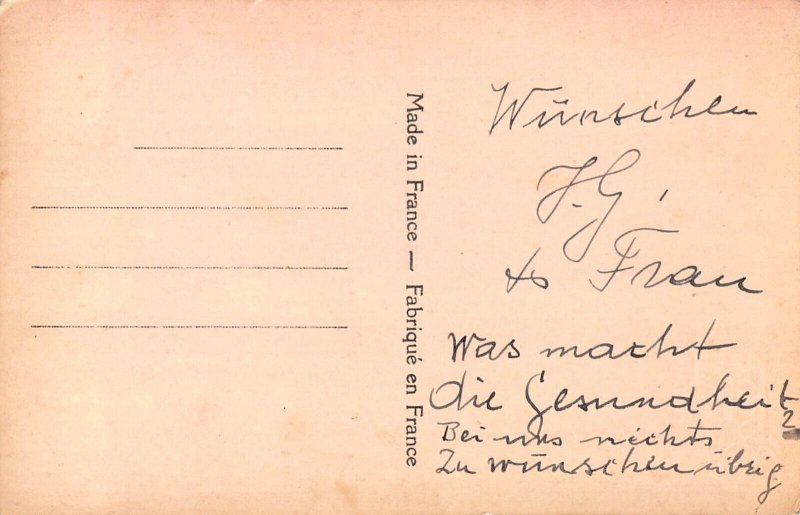 Made in France — Fabriqué en France
Wünschen
J. G.
Frau
Was macht
die Gesundheit?
Bei uns nichts
Zu wünschen übrig